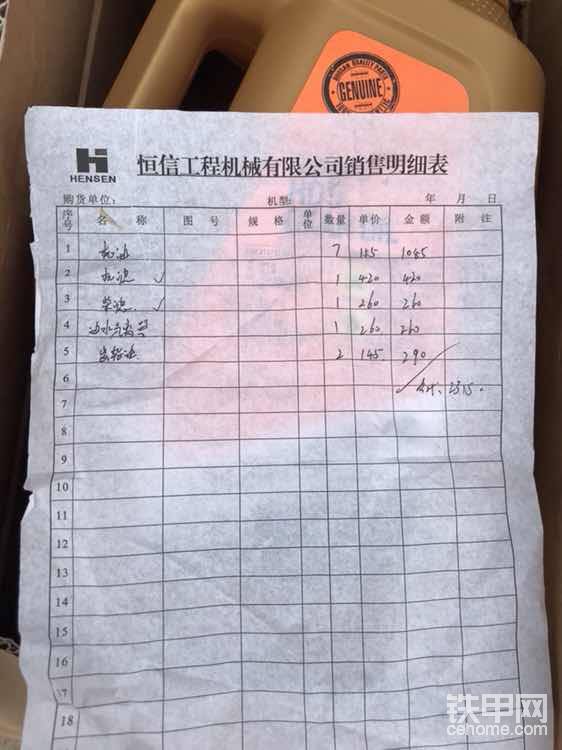 GENUINE
HENSEN
恒信工程机械有限公司销售明细表
购货单位: 机型: 年 月 日
序号 名 称 图 号 规 格 单位 数量 单价 金 额 附 注
1 机油 7 155 1085
2 机滤 ✓ 1 420 420
3 柴滤 ✓ 1 260 260
4 油水分离器 1 260 260
5 齿轮油 2 145 290
6 合计: 2315.
7
8
9
10
11
12
13
14
15
16
17
18
铁甲网
cehome.com